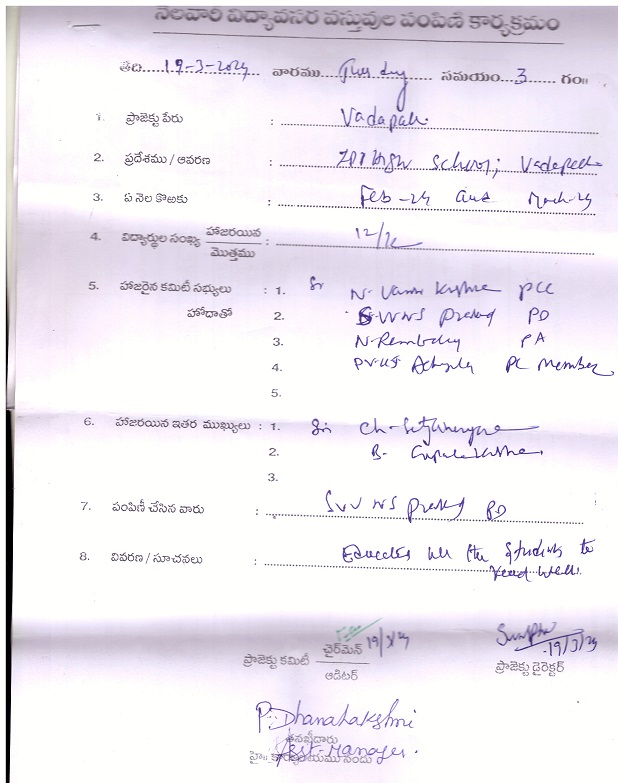 నెలవారి విద్యావసర వస్తువుల పంపిణి కార్యక్రమం
తేది 19-3-2024 వారము Tuesday సమయం 3 గం॥
1. ప్రాజెక్టు పేరు : Vadapalli
2. ప్రదేశము / ఆవరణ : School; Vadapalli
3. ఏ నెల కొఱకు : Feb-24 and March-24
4. విద్యార్థుల సంఖ్య హాజరయిన / మొత్తము : 12/12
5. హాజరైన కమిటీ సభ్యులు : 1. Sri N. Vamsi Krishna PCC
హోదాతో 2. SVVNS Prasad PD
3. N. PA
4. PC Member
5.
6. హాజరయిన ఇతర ముఖ్యులు : 1. Sri Ch.
2. B. Gopala Krishna
3.
7. పంపిణీ చేసిన వారు : SVVNS Prasad PD
8. వివరణ / సూచనలు : all the students to
read well.
ప్రాజెక్టు కమిటీ చైర్‌మెన్ / ఆడిటర్ 19/3/24
19/3/24
ప్రాజెక్టు డైరెక్టర్
P. Dhanalakshmi
తనఖీదారు
Asst. Manager
హై॥ కార్యాలయము నందు